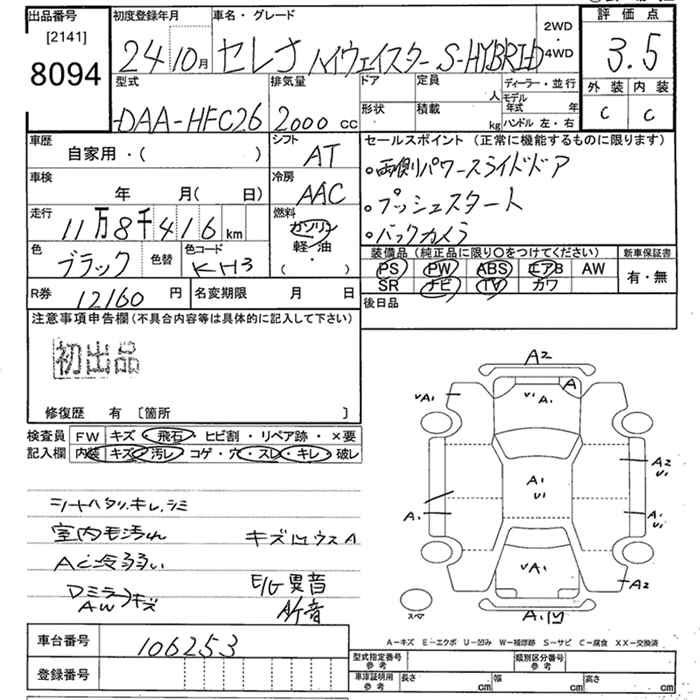 出品番号
[2141]
8094
初度登録年月
24 10月
車名・グレード
セレナ ハイウェイスター S-HYBRID
2WD
・
4WD
評価点
3.5
外装 内装
C C
型式
DAA-HFC26
排気量
2000 cc
ドア 定員
人
形状 積載
kg
ディーラー・並行
モデル年式 年
ハンドル 左・右
車歴
自家用・( )
シフト
AT
車検
年 月( 日)
冷房
AAC
走行
11万8千416 km
燃料
ガソリン
軽・油
・( )
色
ブラック
色替
色コード
KH3
R券 12160 円
名変期限 月 日
セールスポイント (正常に機能するものに限ります)
・両側パワースライドドア
・プッシュスタート
・バックカメラ
装備品 (純正品に限り○をつけてください) 新車保証書
PS PW ABS エアB AW
SR ナビ TV カワ
有・無
後日品
注意事項申告欄(不具合内容等は具体的に記入して下さい)
初出品
修復歴 有 [箇所 ]
検査員 FW キズ・飛石・ヒビ割・リペア跡・×要
記入欄 内装 キズ・汚レ・コゲ・穴・スレ・キレ・破レ
シートヘタリ.キレ.シミ
室内毛汚れ キズ凹ウスA
AC冷弱い
Dミラー
AW キズ
E/G異音
A/T音
A2
VA1 V1 A1 A
A1 V1
A1
A2 V1
A1 V1
VA1
A2
スペア
A1凹
A-キズ E-エクボ U-凹み W-補修跡 S-サビ C-腐食 XX-交換済
車台番号 106253
登録番号
型式指定番号
参考
類別区分番号
参考
車庫証明用
参考
長さ cm 幅 cm 高さ cm